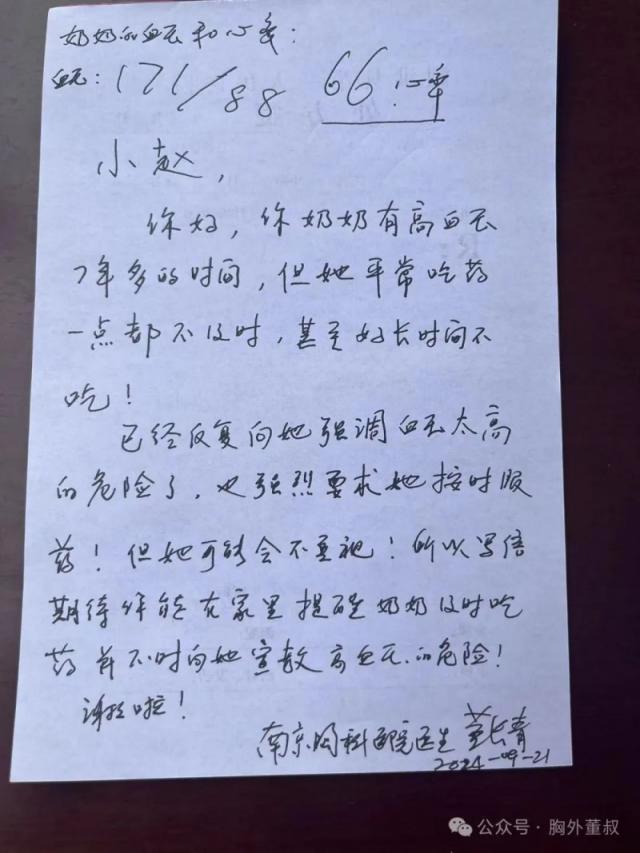 奶奶的血压和心率：
血压：171/88 66 心率
小赵，
你好，你奶奶有高血压
7年多的时间，但她平常吃药
一点都不及时，甚至好长时间不
吃！
已经反复向她强调血压太高
的危险了，也强烈要求她按时服
药！但她可能会不重视！所以写信
期待你能在家里提醒奶奶及时吃
药并不时向她宣教高血压的危险！
谢谢啦！
南京胸科医院医生 董长青
2024-09-21
公众号·胸外董叔